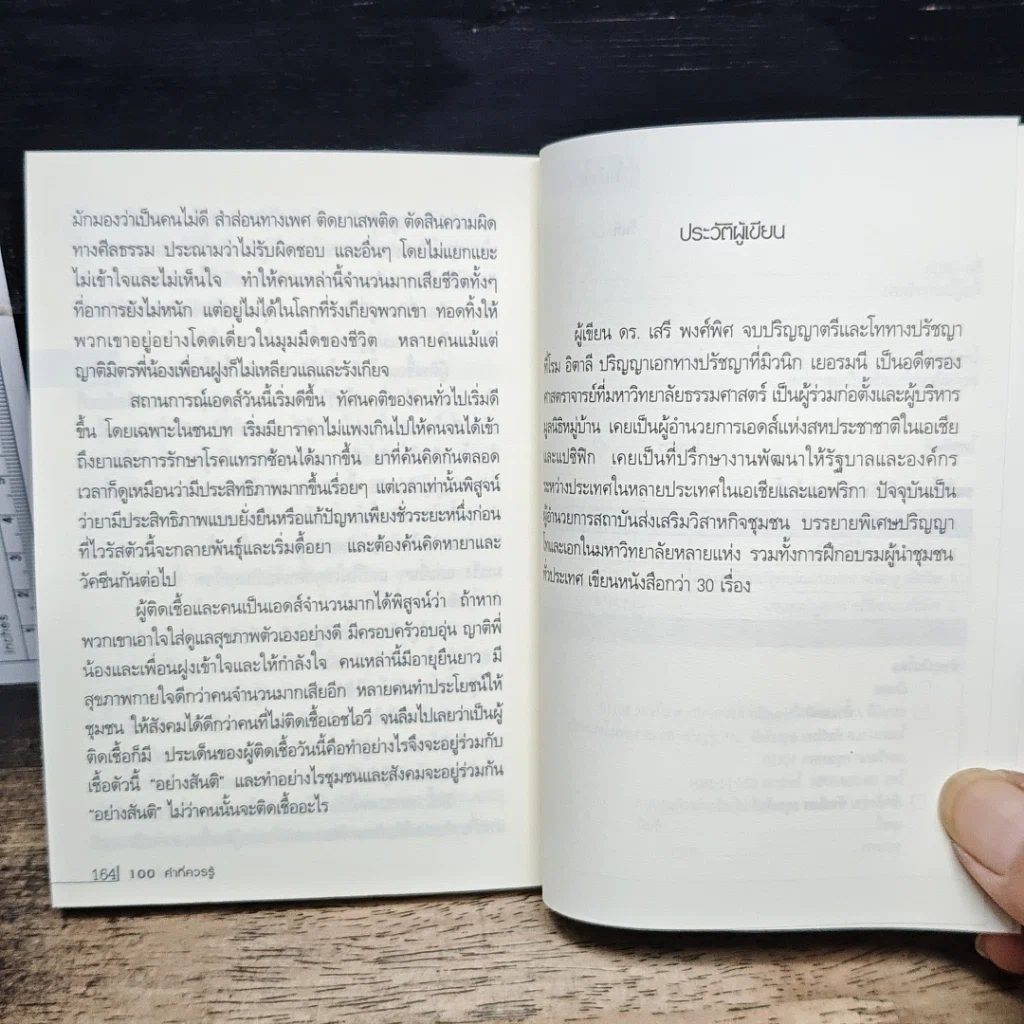 มักมองว่าเป็นคนไม่ดี สำส่อนทางเพศ ติดยาเสพติด ตัดสินความผิด
ทางศีลธรรม ประณามว่าไม่รับผิดชอบ และอื่นๆ โดยไม่แยกแยะ
ไม่เข้าใจและไม่เห็นใจ ทำให้คนเหล่านี้จำนวนมากเสียชีวิตทั้งๆ
ที่อาการยังไม่หนัก แต่อยู่ไม่ได้ในโลกที่รังเกียจพวกเขา ทอดทิ้งให้
พวกเขาอยู่อย่างโดดเดี่ยวในมุมมืดของชีวิต หลายคนแม้แต่
ญาติมิตรพี่น้องเพื่อนฝูงก็ไม่เหลียวแลและรังเกียจ
สถานการณ์เอดส์วันนี้เริ่มดีขึ้น ทัศนคติของคนทั่วไปเริ่มดี
ขึ้น โดยเฉพาะในชนบท เริ่มมียาราคาไม่แพงเกินไปให้คนจนได้เข้า
ถึงยาและการรักษาโรคแทรกซ้อนได้มากขึ้น ยาที่ค้นคิดกันตลอด
เวลาก็ดูเหมือนว่ามีประสิทธิภาพมากขึ้นเรื่อยๆ แต่เวลาเท่านั้นพิสูจน์
ว่ายามีประสิทธิภาพแบบยั่งยืนหรือแก้ปัญหาเพียงชั่วระยะหนึ่งก่อน
ที่ไวรัสตัวนี้จะกลายพันธุ์และเริ่มดื้อยา และต้องค้นคิดหายาและ
วัคซีนกันต่อไป
ผู้ติดเชื้อและคนเป็นเอดส์จำนวนมากได้พิสูจน์ว่า ถ้าหาก
พวกเขาเอาใจใส่ดูแลสุขภาพตัวเองอย่างดี มีครอบครัวอบอุ่น ญาติพี่
น้องและเพื่อนฝูงเข้าใจและให้กำลังใจ คนเหล่านี้มีอายุยืนยาว มี
สุขภาพกายใจดีกว่าคนจำนวนมากเสียอีก หลายคนทำประโยชน์ให้
ชุมชน ให้สังคมได้ดีกว่าคนที่ไม่ติดเชื้อเอชไอวี จนลืมไปเลยว่าเป็นผู้
ติดเชื้อก็มี ประเด็นของผู้ติดเชื้อวันนี้คือทำอย่างไรจึงจะอยู่ร่วมกับ
เชื้อตัวนี้ "อย่างสันติ" และทำอย่างไรชุมชนและสังคมจะอยู่ร่วมกัน
"อย่างสันติ" ไม่ว่าคนนั้นจะติดเชื้ออะไร
164| 100 คำที่ควรรู้
ประวัติผู้เขียน
ผู้เขียน ดร. เสรี พงศ์พิศ จบปริญญาตรีและโททางปรัชญา
ที่โรม อิตาลี ปริญญาเอกทางปรัชญาที่มิวนิก เยอรมนี เป็นอดีตรอง
ศาสตราจารย์ที่มหาวิทยาลัยธรรมศาสตร์ เป็นผู้ร่วมก่อตั้งและผู้บริหาร
มูลนิธิหมู่บ้าน เคยเป็นผู้อำนวยการเอดส์แห่งสหประชาชาติในเอเชีย
และแปซิฟิก เคยเป็นที่ปรึกษางานพัฒนาให้รัฐบาลและองค์กร
ระหว่างประเทศในหลายประเทศในเอเชียและแอฟริกา ปัจจุบันเป็น
ผู้อำนวยการสถาบันส่งเสริมวิสาหกิจชุมชน บรรยายพิเศษปริญญา
โทและเอกในมหาวิทยาลัยหลายแห่ง รวมทั้งการฝึกอบรมผู้นำชุมชน
ทั่วประเทศ เขียนหนังสือกว่า 30 เรื่อง
inches